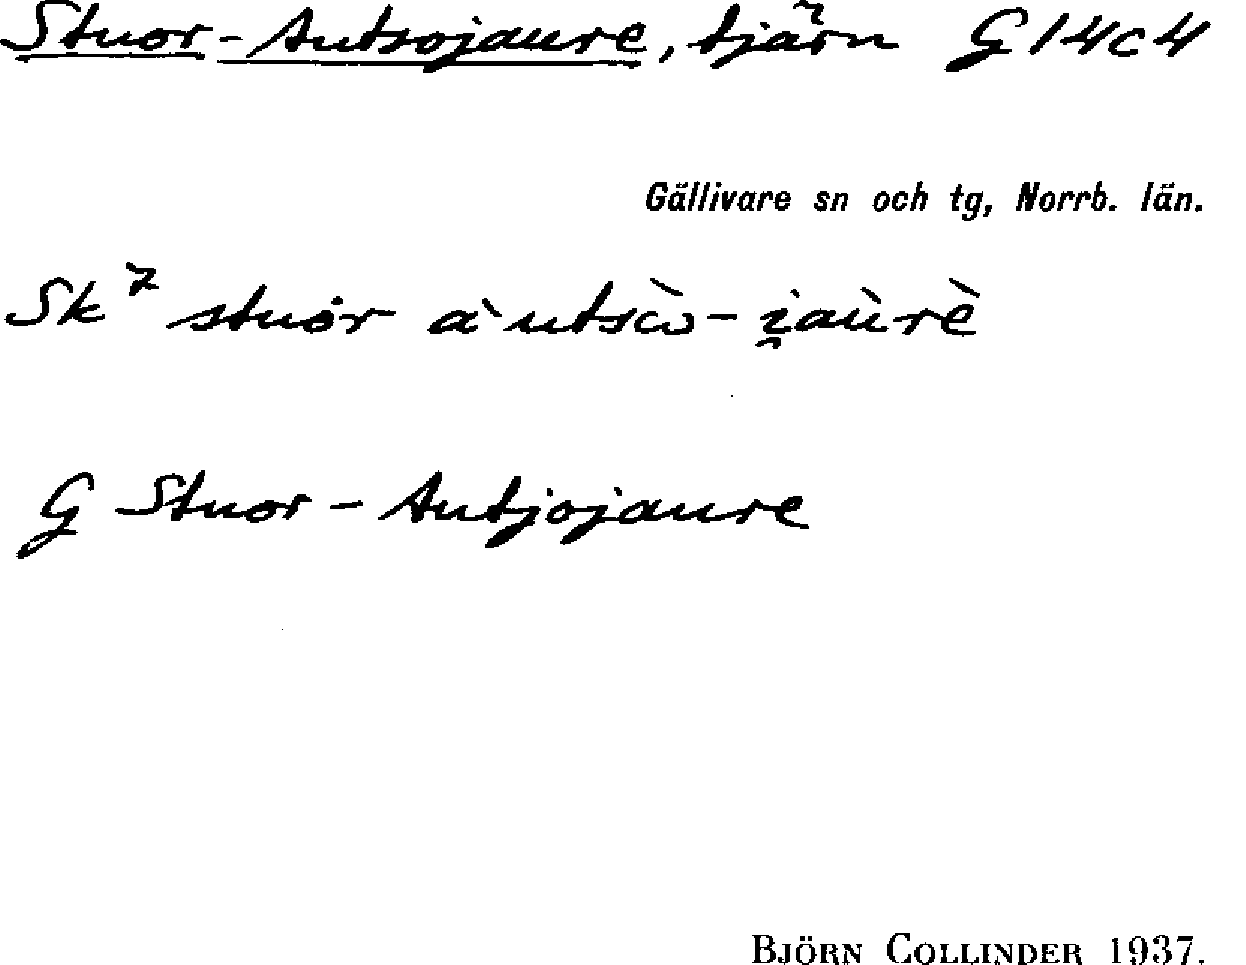 Stuor-Autsojaure, tjärn G14c4
Gällivare sn och tg, Norrb. län.
Sk 7 stuȯr a`utsɔ̀-i̯aùrè
G Stuor-Autjojaure
BJÖRN COLLINDER 1937.